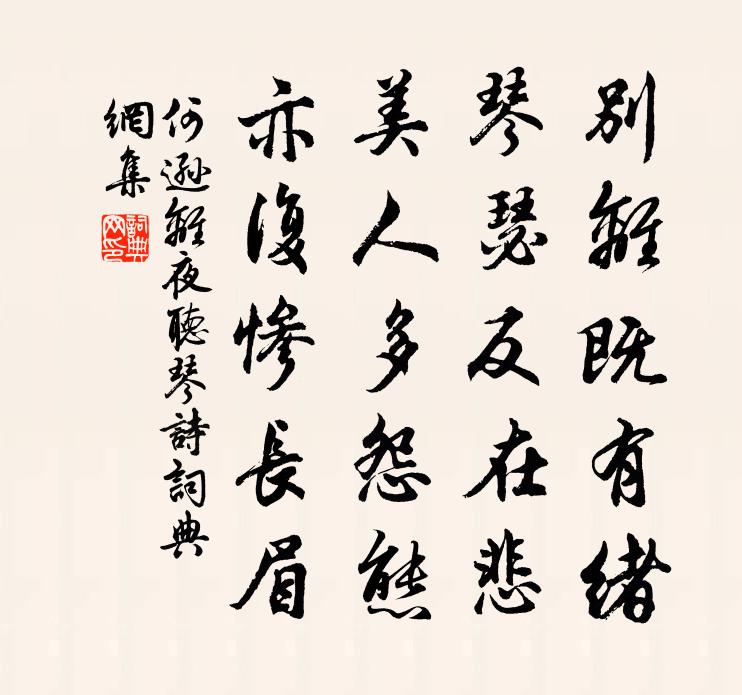 別離既有緒
琴瑟反在悲
美人多怨態
亦復慘長眉
何遜離夜聽琴詩詞典
網集
詞典
网印